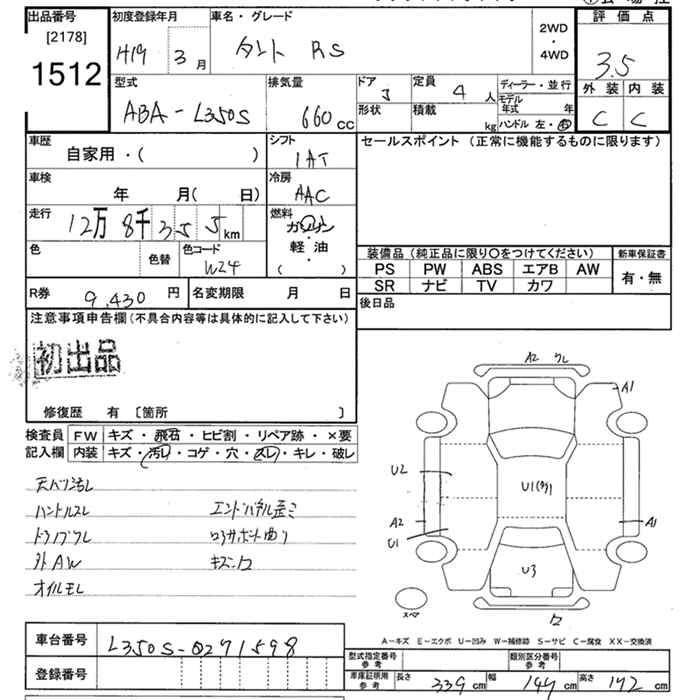 出品番号
[2178]
1512
初度登録年月
H19 3月
車名・グレード
タント RS
2WD
・
4WD
評価点
3.5
外装 内装
C C
型式
ABA-L350S
排気量
660cc
ドア 定員 4人
形状 積載 kg
ディーラー・並行
モデル年式 年
ハンドル 左・右
車歴
自家用・( )
シフト
IAT
車検
年 月( 日)
冷房
AAC
走行
12万 8千355km
燃料
ガソリン
軽・油
( )
色 色替
色コード
W24
R券 9,430円
名変期限 月 日
セールスポイント (正常に機能するものに限ります)
装備品(純正品に限り○をつけてください)
新車保証書
PS PW ABS エアB AW
SR ナビ TV カワ
有・無
後日品
注意事項申告欄(不具合内容等は具体的に記入して下さい)
初出品
修復歴 有 〔箇所 〕
検査員記入欄
FW キズ・飛石・ヒビ割・リペア跡・×要
内装 キズ・汚レ・コゲ・穴・スレ・キレ・破レ
天バリ汚レ
ハンドルスレ
エンドパネル歪ミ
外AW
オイルモレ
A2
A1
U2
U1
A2
U1
A1
U3
スペア
A-キズ E-エクボ U-凹み W-補修跡 S-サビ C-腐食 XX-交換済
車台番号 L350S-0271598
登録番号
型式指定番号参考
類別区分番号参考
車庫証明用参考 長さ 339cm 幅 147cm 高さ 172cm